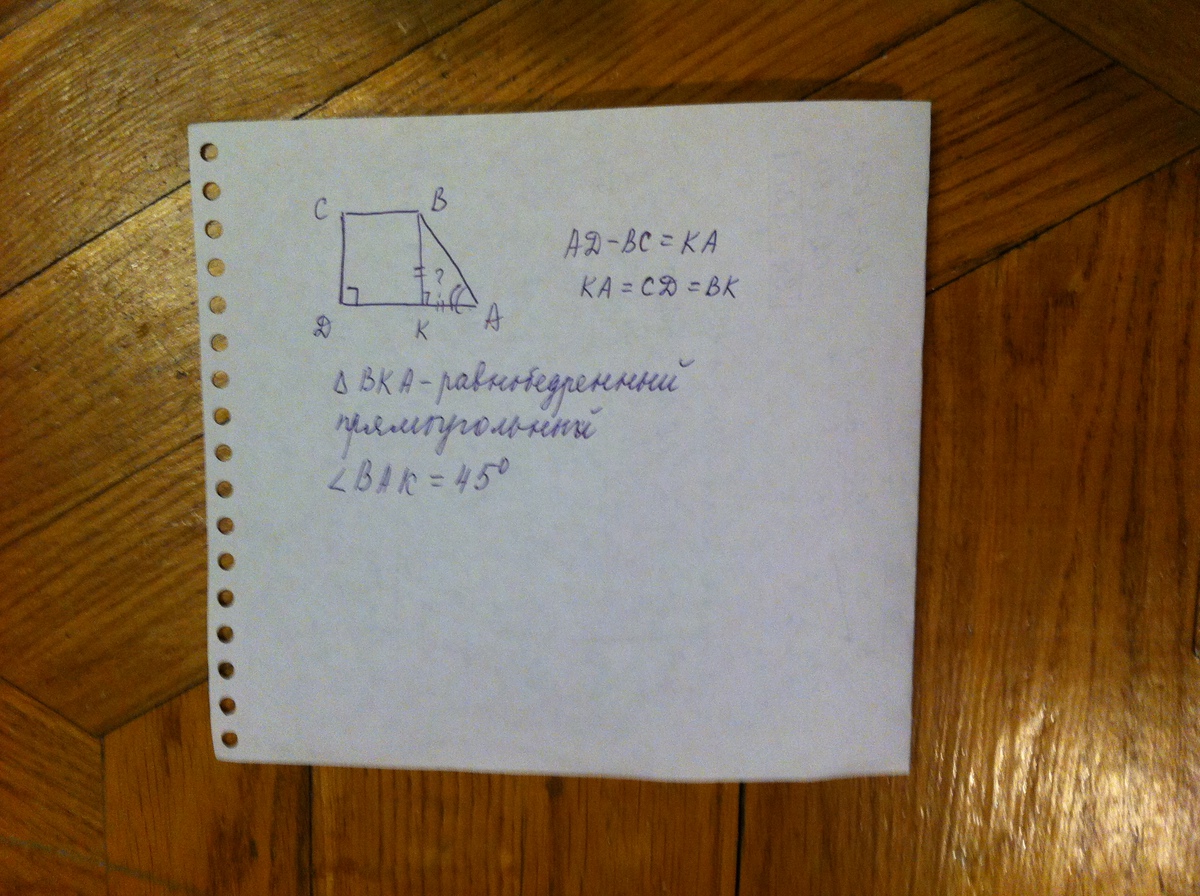 C B
?
D K A
AD-BC=KA
KA=CD=BK
Δ BKA-равнобедренный
прямоугольный
∠BAK=45°